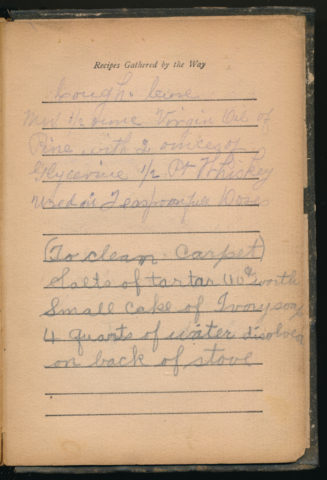 Recipes Gathered by the Way
Cough. cure
Mix 1/2 ounce Virgin Oil of
Pine, with 2 ounces of
Glycerine 1/2 Pt Whiskey
Used in Teaspoonful Doses
(To clean Carpet)
Salts of tartar 10¢ worth
Small cake of Ivory soap
4 quarts of water disolved
on back of stove